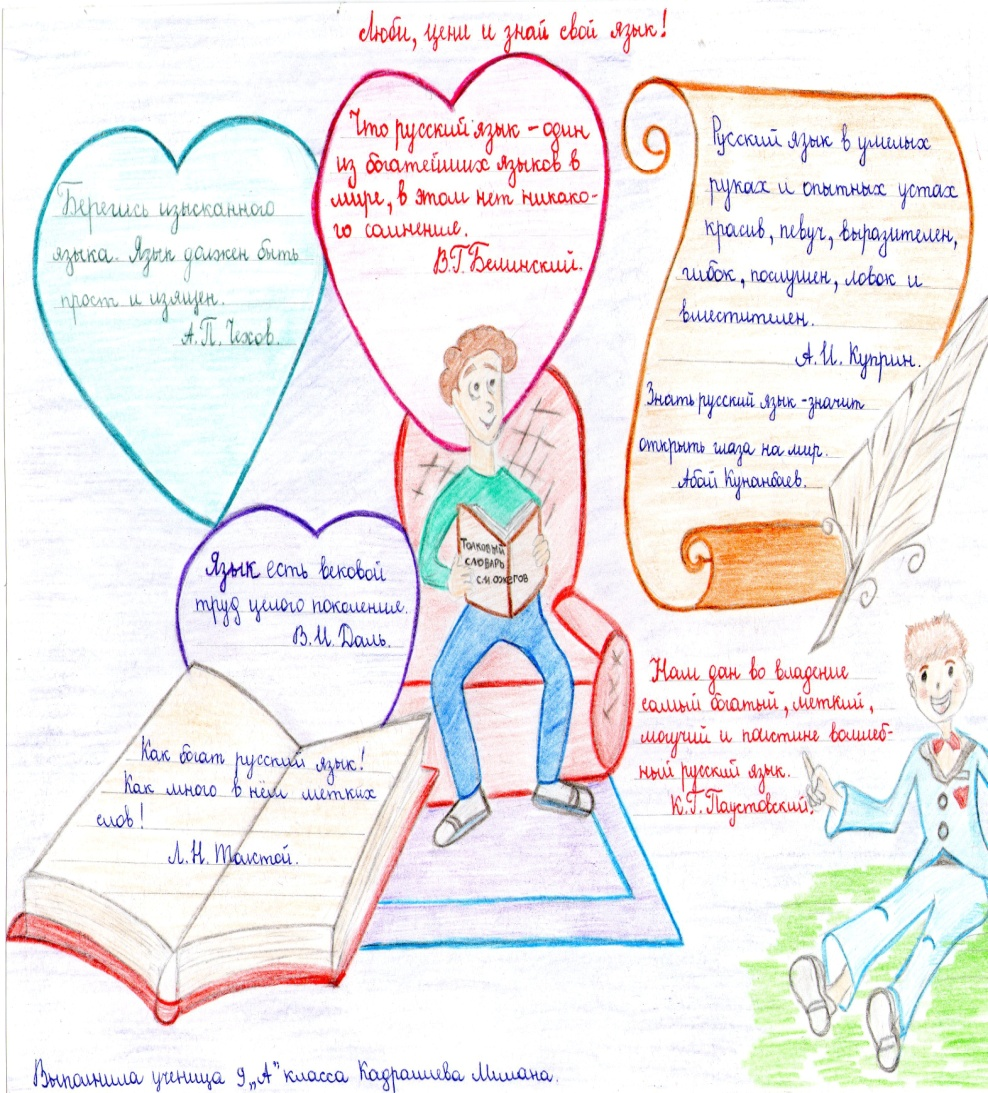 Люби, цени и знай свой язык!
Берегись изысканного
языка. Язык должен быть
прост и изящен.
А.П. Чехов.
Что русский язык – один
из богатейших языков в
мире, в этом нет никако-
го сомнение.
В.Г. Белинский.
Русский язык в умелых
руках и опытных устах
красив, певуч, выразителен,
гибок, послушен, ловок и
вместителен.
А.И. Куприн.
Знать русский язык - значит
открыть глаза на мир.
Абай Кунанбаев.
Язык есть вековой
труд целого поколение.
В.И. Даль.
Толковый
словарь
С.И. Ожегов
Как богат русский язык!
Как много в нём метких
слов!
Л.Н. Толстой.
Нам дан во владение
самый богатый, меткий,
могучий и поистине волшеб-
ный русский язык.
К.Г. Паустовский.
Выполнила ученица 9 „А" класса Кадрашева Милана.